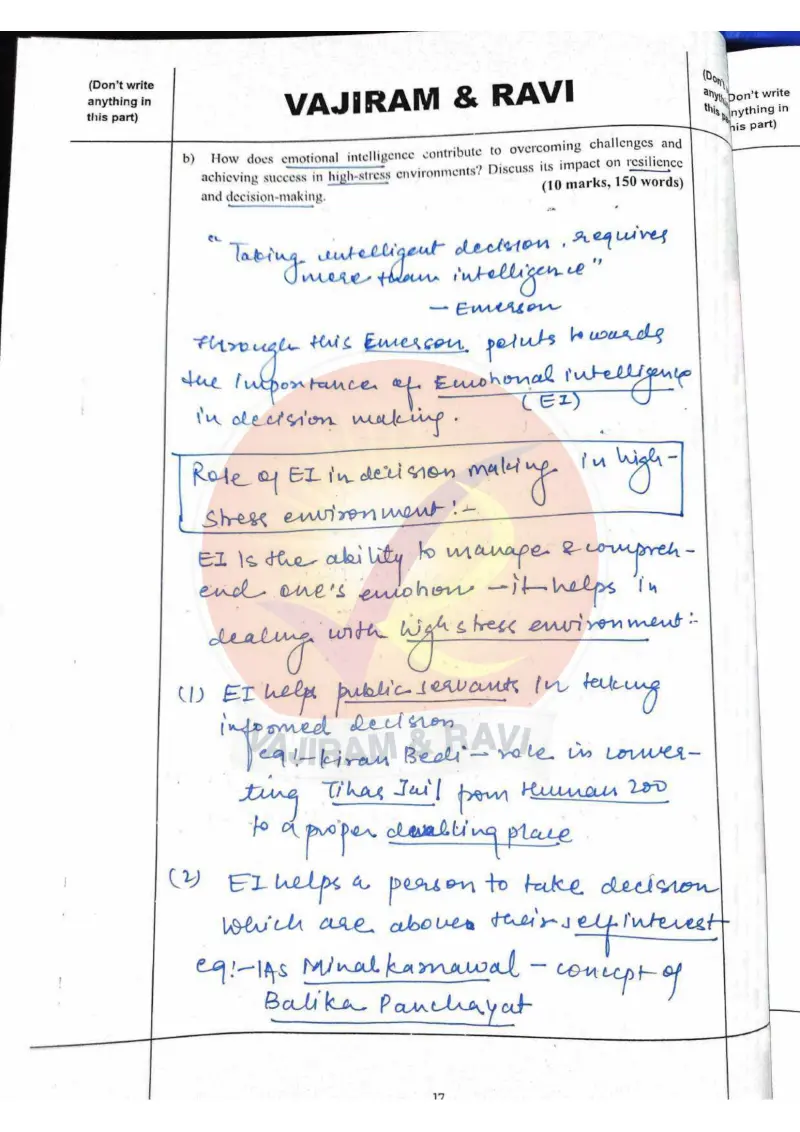 (Don't write
anything in
this part)
VAJIRAM & RAVI
(Don't
Don't write
nything in
his part)
b) How does emotional intelligence contribute to overcoming challenges and
achieving success in high-stress environments? Discuss its impact on resilience
and decision-making.
(10 marks, 150 words)
"Taking intelligent decision, requires
more than intelligence"
- Emerson
Through this Emerson points towards
the importance of Emotional intelligence
(EI)
in decision making.
Role of EI in decision making in high-
stress environment:-
EI is the ability to manage & compreh-
end one's emotion - it helps in
dealing with high stress environment:-
(1) EI help public servants in taking
informed decision
eg:- Kiran Bedi - role in conver-
ting Tihar Jail from Human zoo
to a proper place
(2) EI helps a person to take decision
which are above their self interest
eg:- IAS Minal Karnawal - concept of
Balika Panchayat
VAJIRAM & RAVI
17